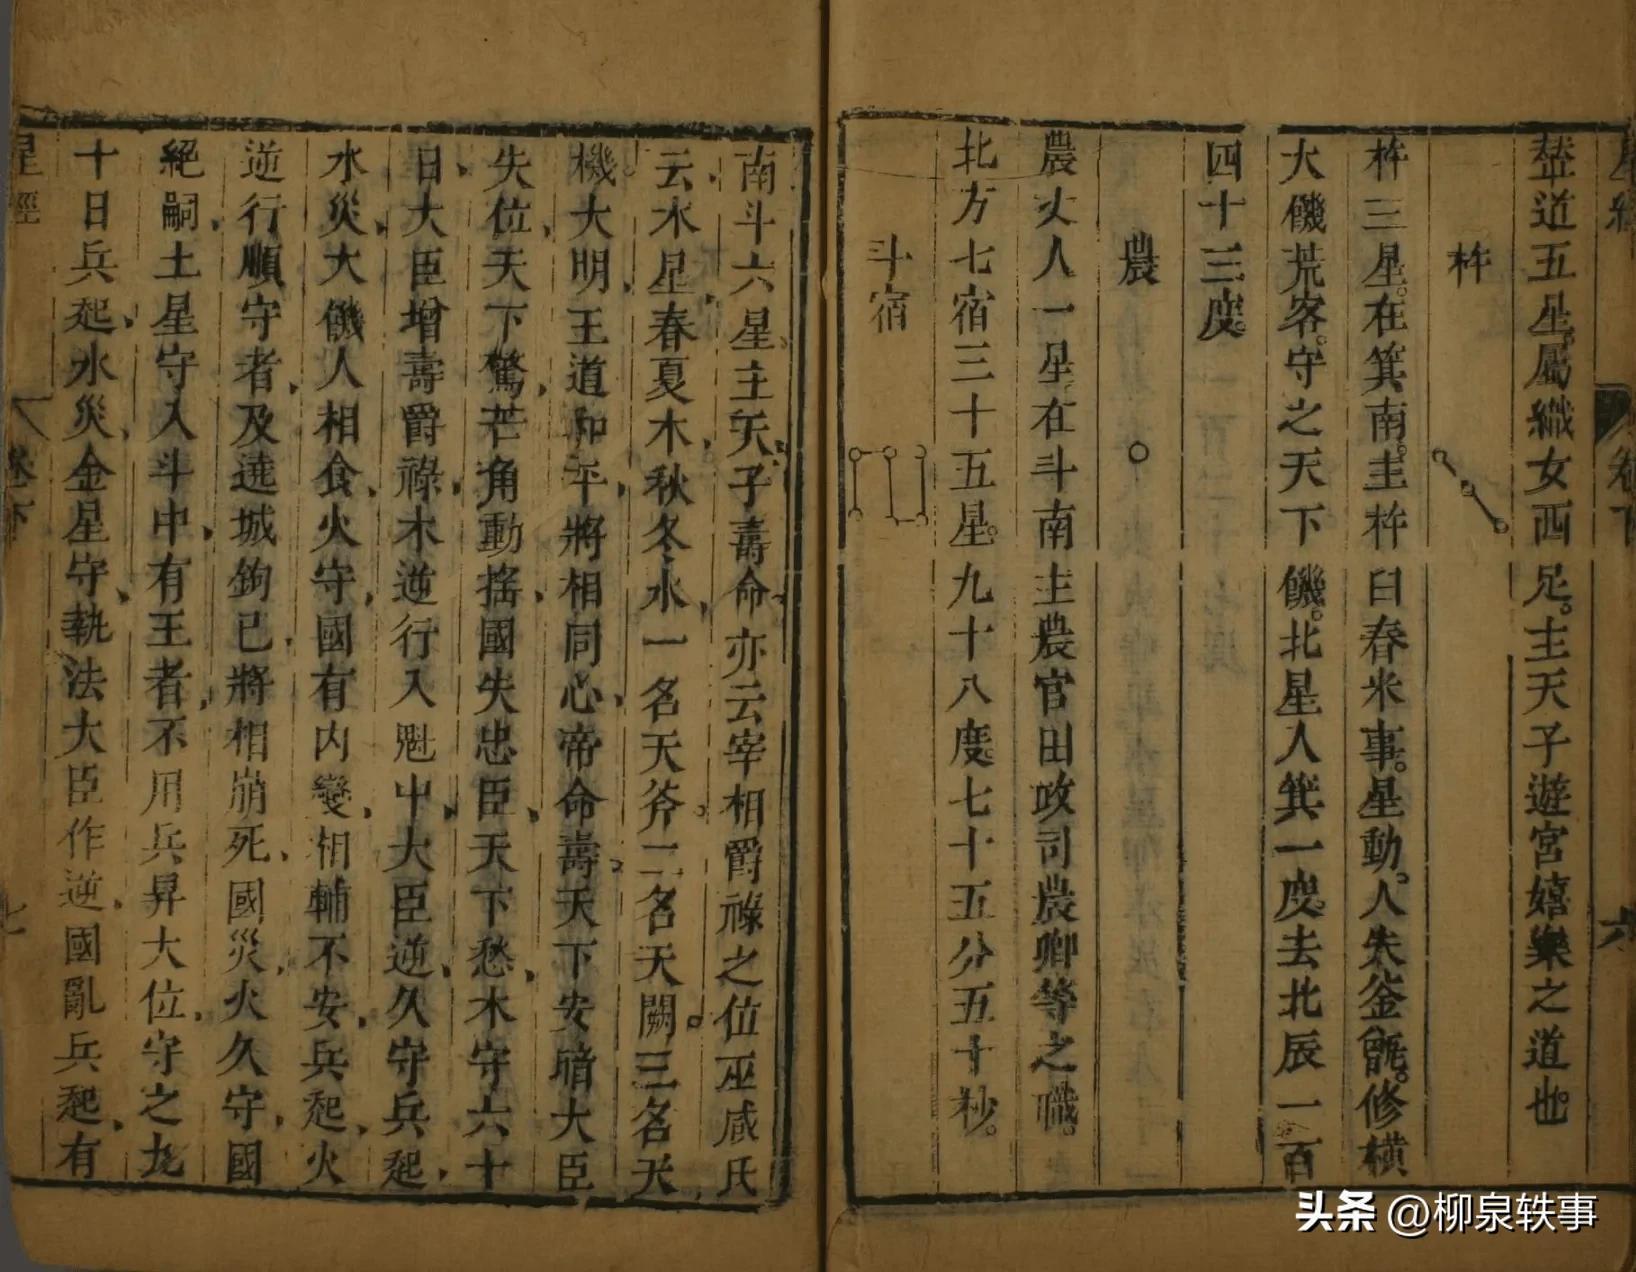 星經
卷下
六
輦道五星。屬織女西足。主天子遊宮嬉樂之道也。
杵
杵三星。在箕南。主杵臼舂米事。星動。人失釜甑。修橫
大饑荒。客守之。天下饑。北星入箕一度。去北辰一百
四十三度。
農
農丈人一星。在斗南。主農官田政司農卿等之職。
北方七宿三十五星。九十八度。七十五分五十秒。
斗宿
南斗六星主天子壽命亦云宰相爵祿之位巫咸氏
云木星春夏木秋冬水一名天斧二名天關三名天
機大明王道和平將相同心帝命壽天下安暗大臣
失位天下驚芒角動搖國失忠臣天下愁木守六十
日大臣增壽爵祿木逆行入魁中大臣逆久守兵起
水災大饑人相食火守國有内變相輔不安兵起火
逆行順守者及遶城鉤已將相崩死國災火久守國
絕嗣土星守入斗中有王者不用兵昇大位守之九
十日兵起水災金星守執法大臣作逆國亂兵起有
星經
卷下
七
头条 @柳泉轶事